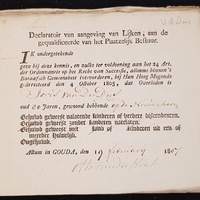 Declaratoir van aangeving van Lijken, aan de
gequalificeerde van het Plaatselijk Bestuur.
Ik ondergeteekende
geve bij deze kennis, en zulks ter voldoening aan het 24 Art.
der Ordonnantie op het Recht van Successie, alömme binnen 't
Bataafsch Gemeenebest intevorderen, bij Haar Hoog Mogende
gearresteerd den 4 October 1805, dat Overleden is
oud 60 Jaren, gewoond hebbende op de
Gehuwd geweest nalatende kinderen of verdere bijzonderen.
Gehuwd geweest zonder kinderen natelaten.
Gehuwd geweest met kind of kinderen uit een of
meerder huwelijk.
Ongehuwd.
Actum in GOUDA, den 19 february 1807